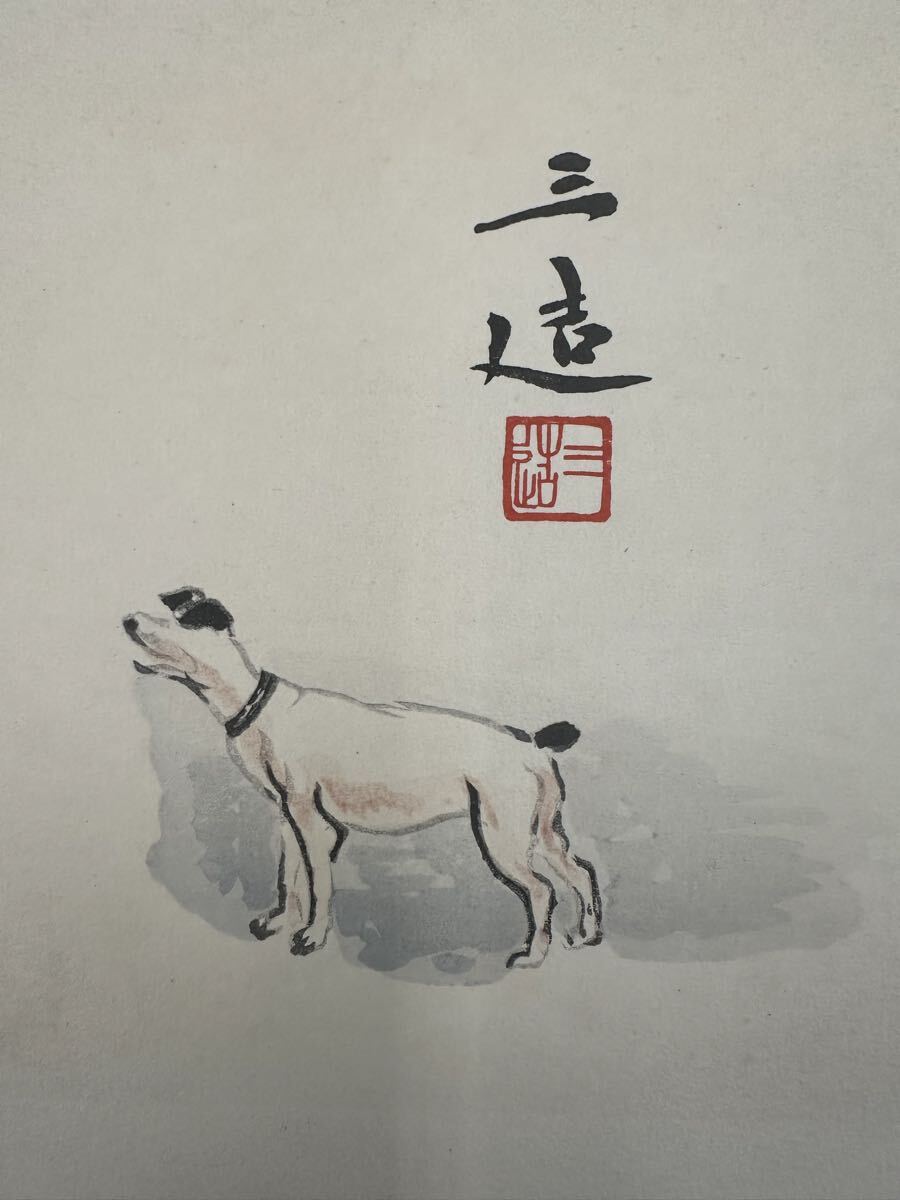 三造
三造